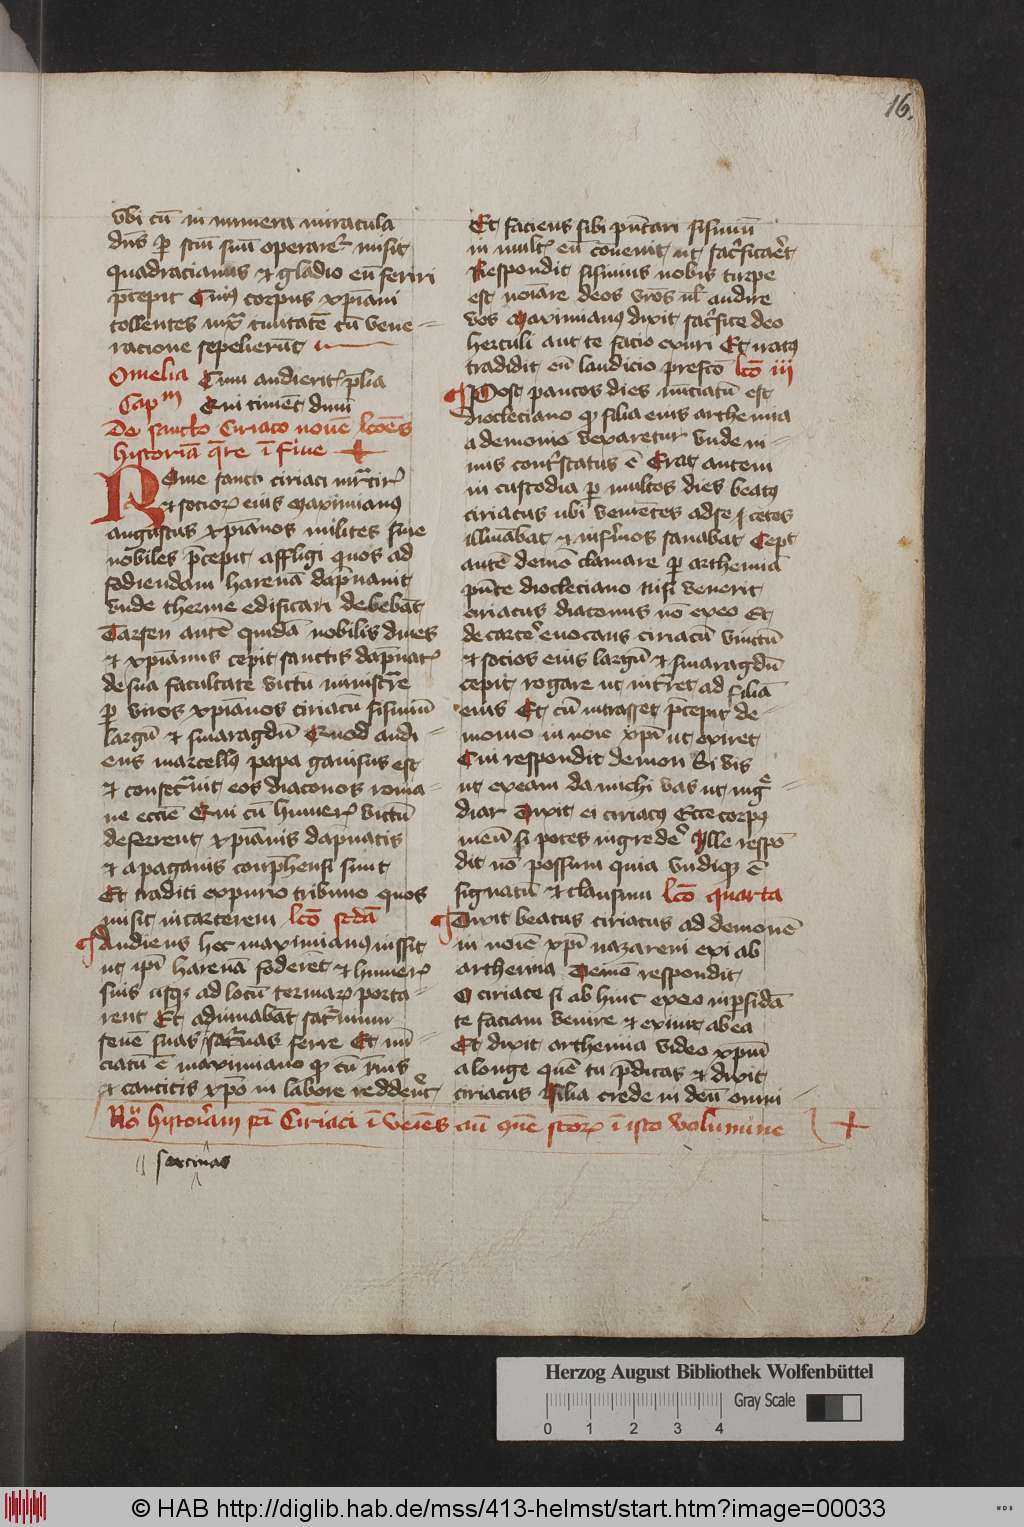 16.
vbi cū in numera miracula
dn̄s ꝑ scm̄ suū operaret᷑ misit
quadracianus et gladio eū feriri
p̄cepit Cuiꝰ corpus xp̄iani
tollentes iux̄ ciuitatē cū vene=
racione sepelierūt
Omelia Cum audierit᷑ p̄lia
Capᵐ Qui timēt dnm̄
De sancto Ciriaco nouē lcōēs
historiā q̄re ī fine +
Rome sancti ciriaci mr̄tir᷑
et socioꝝ eius Maximianꝰ
augustus xp̄ianos milites siue
nobiles p̄cepit affligi quos ad
fodiendam harenā dāpnauit
vnde therme edificari debebāt
Tarsen autē quidā nobilis diues
et xp̄ianus cepit sanctis dāpnat᷑
de sua facultate victu ministrare
ꝑ viros xp̄ianos ciriacū sisinniū
largū et smaragdū Quod audi=
ens marcellꝰ papa gauisus est
et consecrauit eos diaconos roma=
ne eccīe Qui cū humer᷑ victū
deferrent xp̄ianis dāpnatis
et a paganis conp̄hensi sunt
Et traditi expurio tribuno quos
misit in carcerem lcō scdā
¶ Audiens hec maximianꝰ iussit
ut ip̄i harenā foderēt et humer᷑
suis usqꝫ ad locū termaꝝ porta=
rent Et adiuuabāt saturninum
senē suas sarcinas ferre Et nū=
ciatū ē maximiano ꝙ cū ymnis
et canticis xp̄o in labore redderēt᷑
Et faciens sibi pn̄tari sisinniū
in mult᷑ eū cōuenit ut sacrificaret
Respondit sisinnius nobis turpe
est noīare deos vr̄os ul᷑ audire
vos Maximianꝰ dixit sacrifica deo
herculi aut te facio exuri Et iratꝰ
tradidit eū laudicio prefcō lcō iii
¶ Post paucos dies nūciatū est
diocleciano ꝙ filia eius arthemia
a demonio vexaretur vnde ni=
mis contristatus ē Erat autem
in custodia ꝑ multos dies beatꝰ
ciriacus ubi venietes ad se cecos
illuīabat et infirmos sanabat Cepit
autē demō clamare ꝑ arthemiā
pn̄te diocleciano Nisi venerit
ciriacus diaconus nō exeo Et
de carcere euocans ciriacū vinctū
et socios eius largū et smaragdū
cepit rogare ut intraret ad filiā
eius Et cū intrasset p̄cepit de=
monio in noīe xp̄i ut exiret
Cui respondit demon Si vis
ut exeam da michi vas ut ingre=
diar Dixit ei ciriacꝰ Ecce corpꝰ
meū si potes ingredere Ille respō
dit nō possum quia vndiqꝫ ē
signatū et clausum lcō quarta
¶ Dixit beatus ciriacus ad demonē
in noīe xp̄i nazareni exi ab
arthemia Demō respondit
O ciriace si ab hinc exeo in p̄sidā
te faciam venire et exiuit ab ea
Et dixit arthemia video xp̄m
a longe quē tu p̄dicas et dixit
ciriacus Filia crede in deū omni=
No᷑ hystoriam sc̄i Ciriaci ī veīēs aū quē scoꝝ ī isto volumine +
sarcinas
Herzog August Bibliothek Wolfenbüttel
Gray Scale
0 1 2 3 4
© HAB http://diglib.hab.de/mss/413-helmst/start.htm?image=00033
WDB